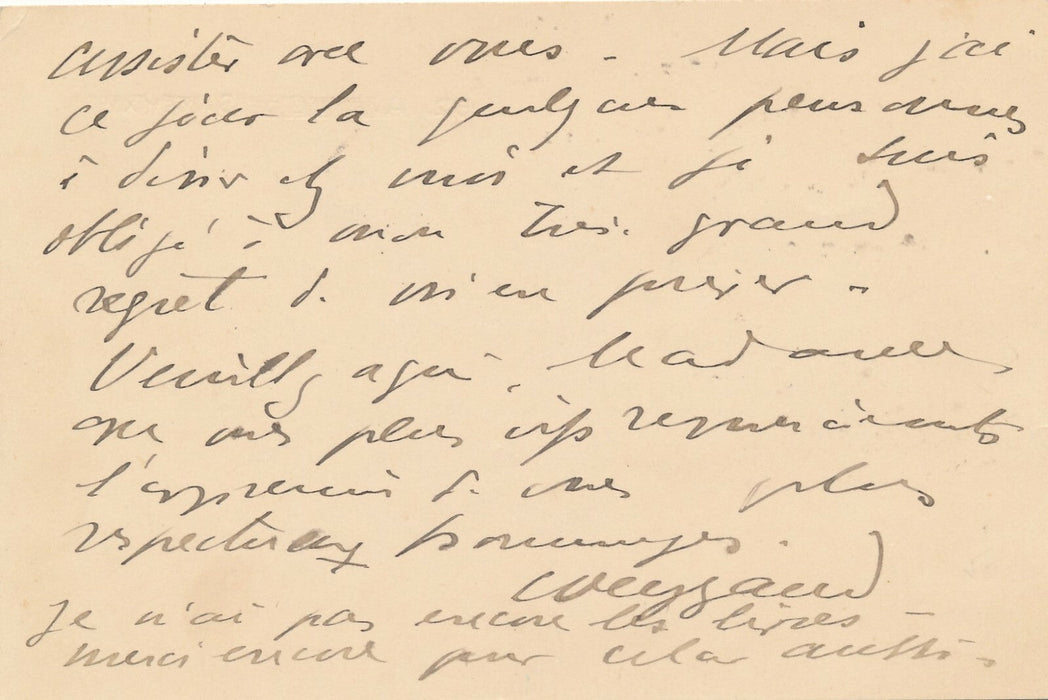 assister avec vous - Mais j'ai
ce jour là quelques personnes
à dîner chez moi et je suis
obligé à mon très grand
regret de m'en priver -
Veuillez agréer, Madame
avec mes plus vifs remerciements
l'expression de mes plus
respectueux hommages.
Weygand
Je n'ai pas encore les livres -
merci encore pour cela aussi -